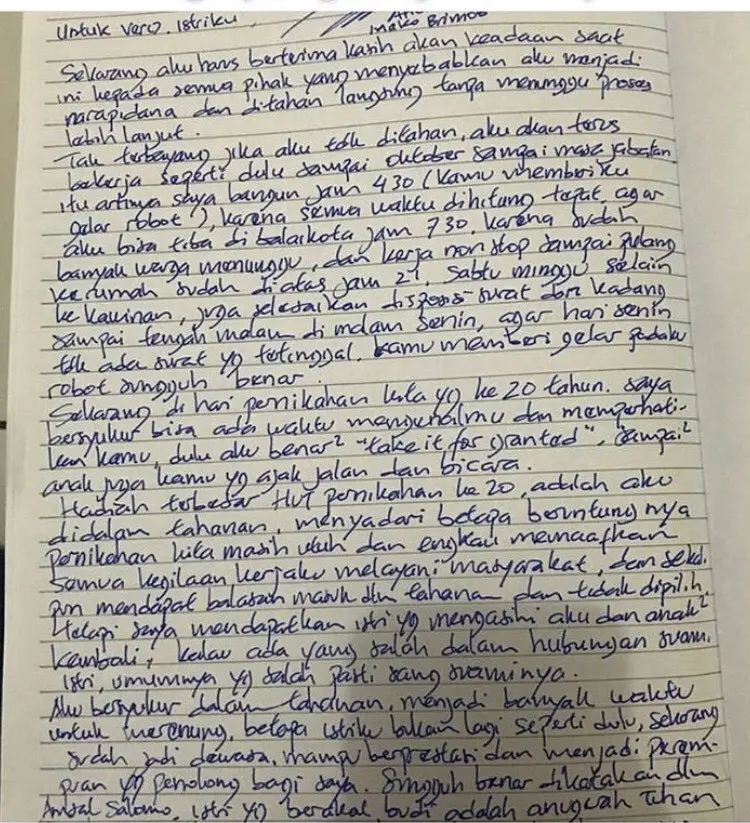 Untuk Vero. Istriku,
Mako Brimob
Sekarang aku harus berterima kasih akan keadaan saat
ini kepada semua pihak yang menyebabkan aku menjadi
narapidana dan ditahan langsung tanpa menunggu proses
lebih lanjut.
Tak terbayang jika aku tdk ditahan, aku akan terus
bekerja seperti dulu sampai oktober sampai masa jabatan
itu artinya saya bangun jam 430 (kamu memberiku
gelar robot), karena semua waktu dihitung tepat, agar
aku bisa tiba di balaikota jam 730, karena sudah
banyak warga menunggu, dan kerja non stop sampai pulang
kerumah sudah diatas jam 21, sabtu minggu selain
ke kawinan, juga selesaikan disposisi surat dan kadang
sampai tengah malam di malam senin, agar hari senin
tdk ada surat yg tertinggal. kamu memberi gelar padaku
robot sungguh benar.
Sekarang di hari pernikahan kita yg ke 20 tahun. saya
bersyukur bisa ada waktu mengenalmu dan memperhati-
kan kamu, dulu aku benar² "take it for granted", sampai²
anak juga kamu yg ajak jalan dan bicara.
Hadiah terbesar HUT pernikahan ke 20, adalah aku
didalam tahanan, menyadari betapa beruntung nya
pernikahan kita masih utuh dan engkau memaafkan
semua kegilaan kerjaku melayani masyarakat, dan sekl.
pun mendapat balasan masuk dlm tahanan dan tidak dipilih.
tetapi saya mendapatkan istri yg mengasihi aku dan anak²
kembali, kalau ada yang salah dalam hubungan suami.
istri, umumnya yg salah pasti sang suaminya.
Aku bersyukur dalam tahanan, menjadi banyak waktu
untuk merenung, betapa istriku bukan lagi seperti dulu, sekarang
sudah jadi dewasa, mampu berprestasi dan menjadi perem-
puan yg penolong bagi saya. Sungguh benar dikatakan dlm
Amsal Salomo, istri yg berakal budi adalah anugerah Tuhan